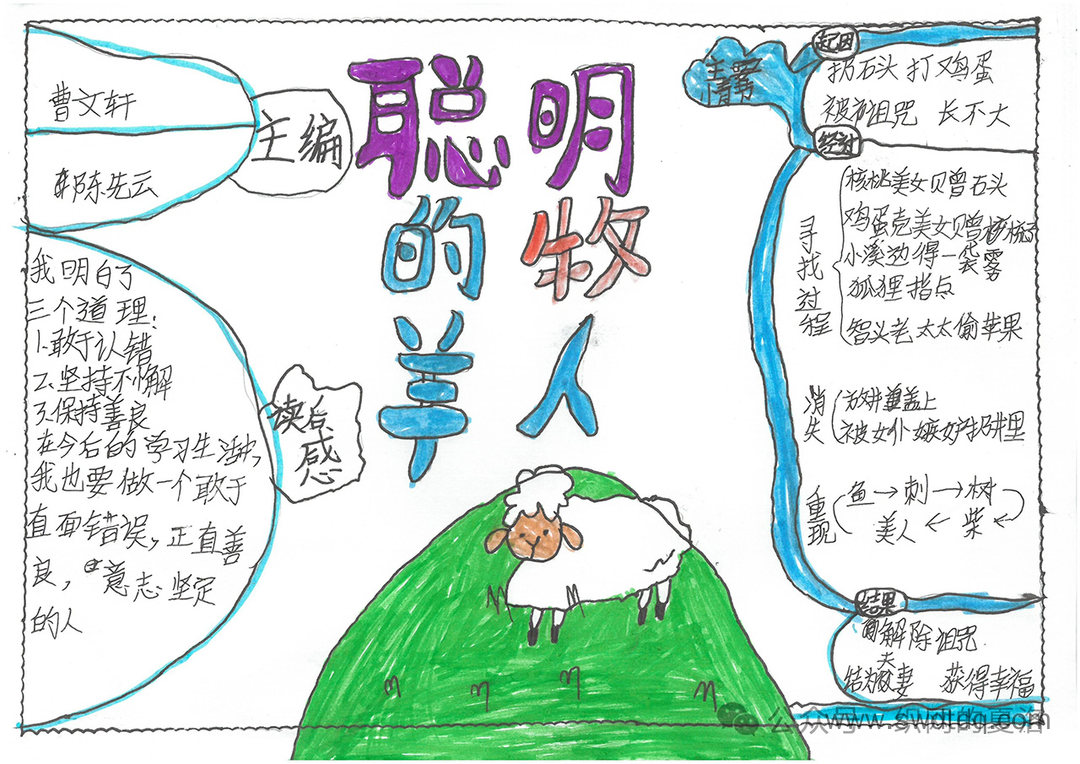 聪明
的牧
羊人
主编
曹文轩
陈先云
读后感
我明白了
三个道理：
1.敢于认错
2.坚持不懈
3.保持善良
在今后的学习生活中，
我也要做一个敢于
直面错误，正直善
良，意志坚定
的人
主要
情节
起因
扔石头打鸡蛋
被诅咒 长不大
经过
寻找过程
核桃美女贝曾石头
鸡蛋壳美女赠核桃
小溪边得一袋雾
狐狸指点
智斗老太太偷苹果
消失
被女仆嫉妒扔井里
重现
鱼→刺→树
美人←柴←
结果
解除诅咒
结为夫妻 获得幸福
公众号